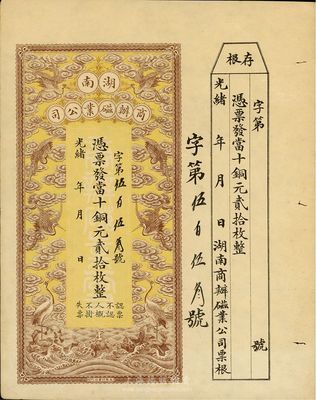 存根
字第　　號
憑票發當十銅元貳拾枚整
光緒　年　月　日湖南商辦磁業公司票根
字第伍百伍角號
湖南
商辦磁業公司
字第伍百伍角號
憑票發當十銅元貳拾枚整
光緒　年　月　日
認票不認人概不掛失票